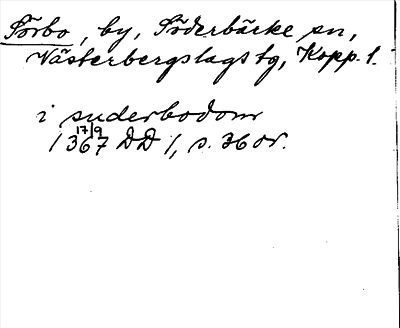 Sörbo, by, Söderbärke sn,
Västerbergslags tg, Kopp. l.
i suderbodom
17/9
1367 DD 1, s. 36 or.